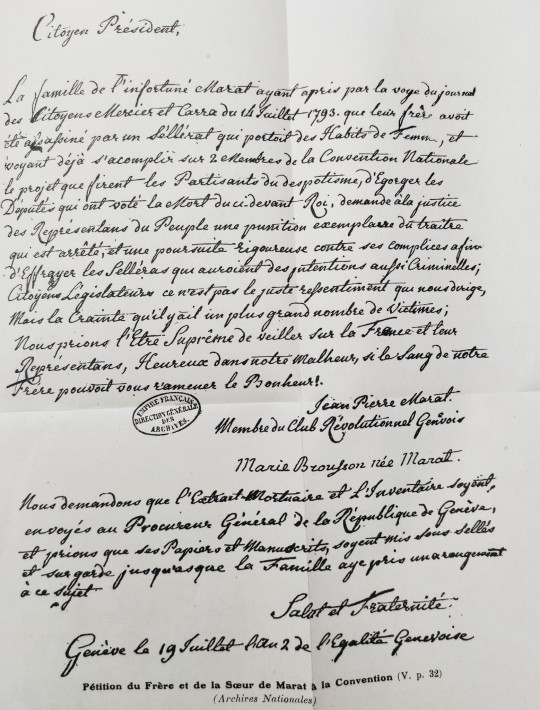 Citoyen Président,
La famille de l'infortuné Marat ayant apris par la voye du journal
des Citoyens Mercier et Carra du 14 Juillet 1793. que leur frère avoit
été assassiné par un Séllérat qui portoit des Habits de Femme, et
voyant déjà s'acomplir sur 2 Membres de la Convention Nationale
le projet que firent les Partisants du despotisme, d'Egorger les
Députés qui ont voté la Mort du cidevant Roi, demande à la justice
des Représentans du Peuple une punition exemplaire du traitre
qui est arrêté, et une poursuite rigoureuse contre ses complices afin
d'Effrayer les Selléras qui auroient des intentions aussi Criminelles;
Citoyens Législateurs ce n'est pas le juste ressentiment qui nous dirige,
Mais la Crainte qu'il y ait un plus grand nombre de Victimes;
Nous prions l'Etre Suprême de veiller sur la France et leur
Représentans, Heureux dans notre Malheur, si le Sang de notre
Frère pouvoit vous ramener le Bonheur!.
EMPIRE FRANÇAIS
DIRECTION GÉNÉRALE
DES
ARCHIVES.
Jean Pierre Marat.
Membre du Club Révolutionnel Genevois
Marie Brousson née Marat.
Nous demandons que l'Extrait-Mortuaire et L'Inventaire soyent,
envoyés au Procureur Général de la République de Genève,
et prions que ses Papiers et Manuscrits, soyent mis sous sellés
et sur garde jusqu'asque la Famille aye pris un arangement
à ce sujet
Salut et Fraternité.
Genève le 19 Juillet l'an 2 de l'Egalité Genevoise
Pétition du Frère et de la Sœur de Marat à la Convention (V. p. 32)
(Archives Nationales)